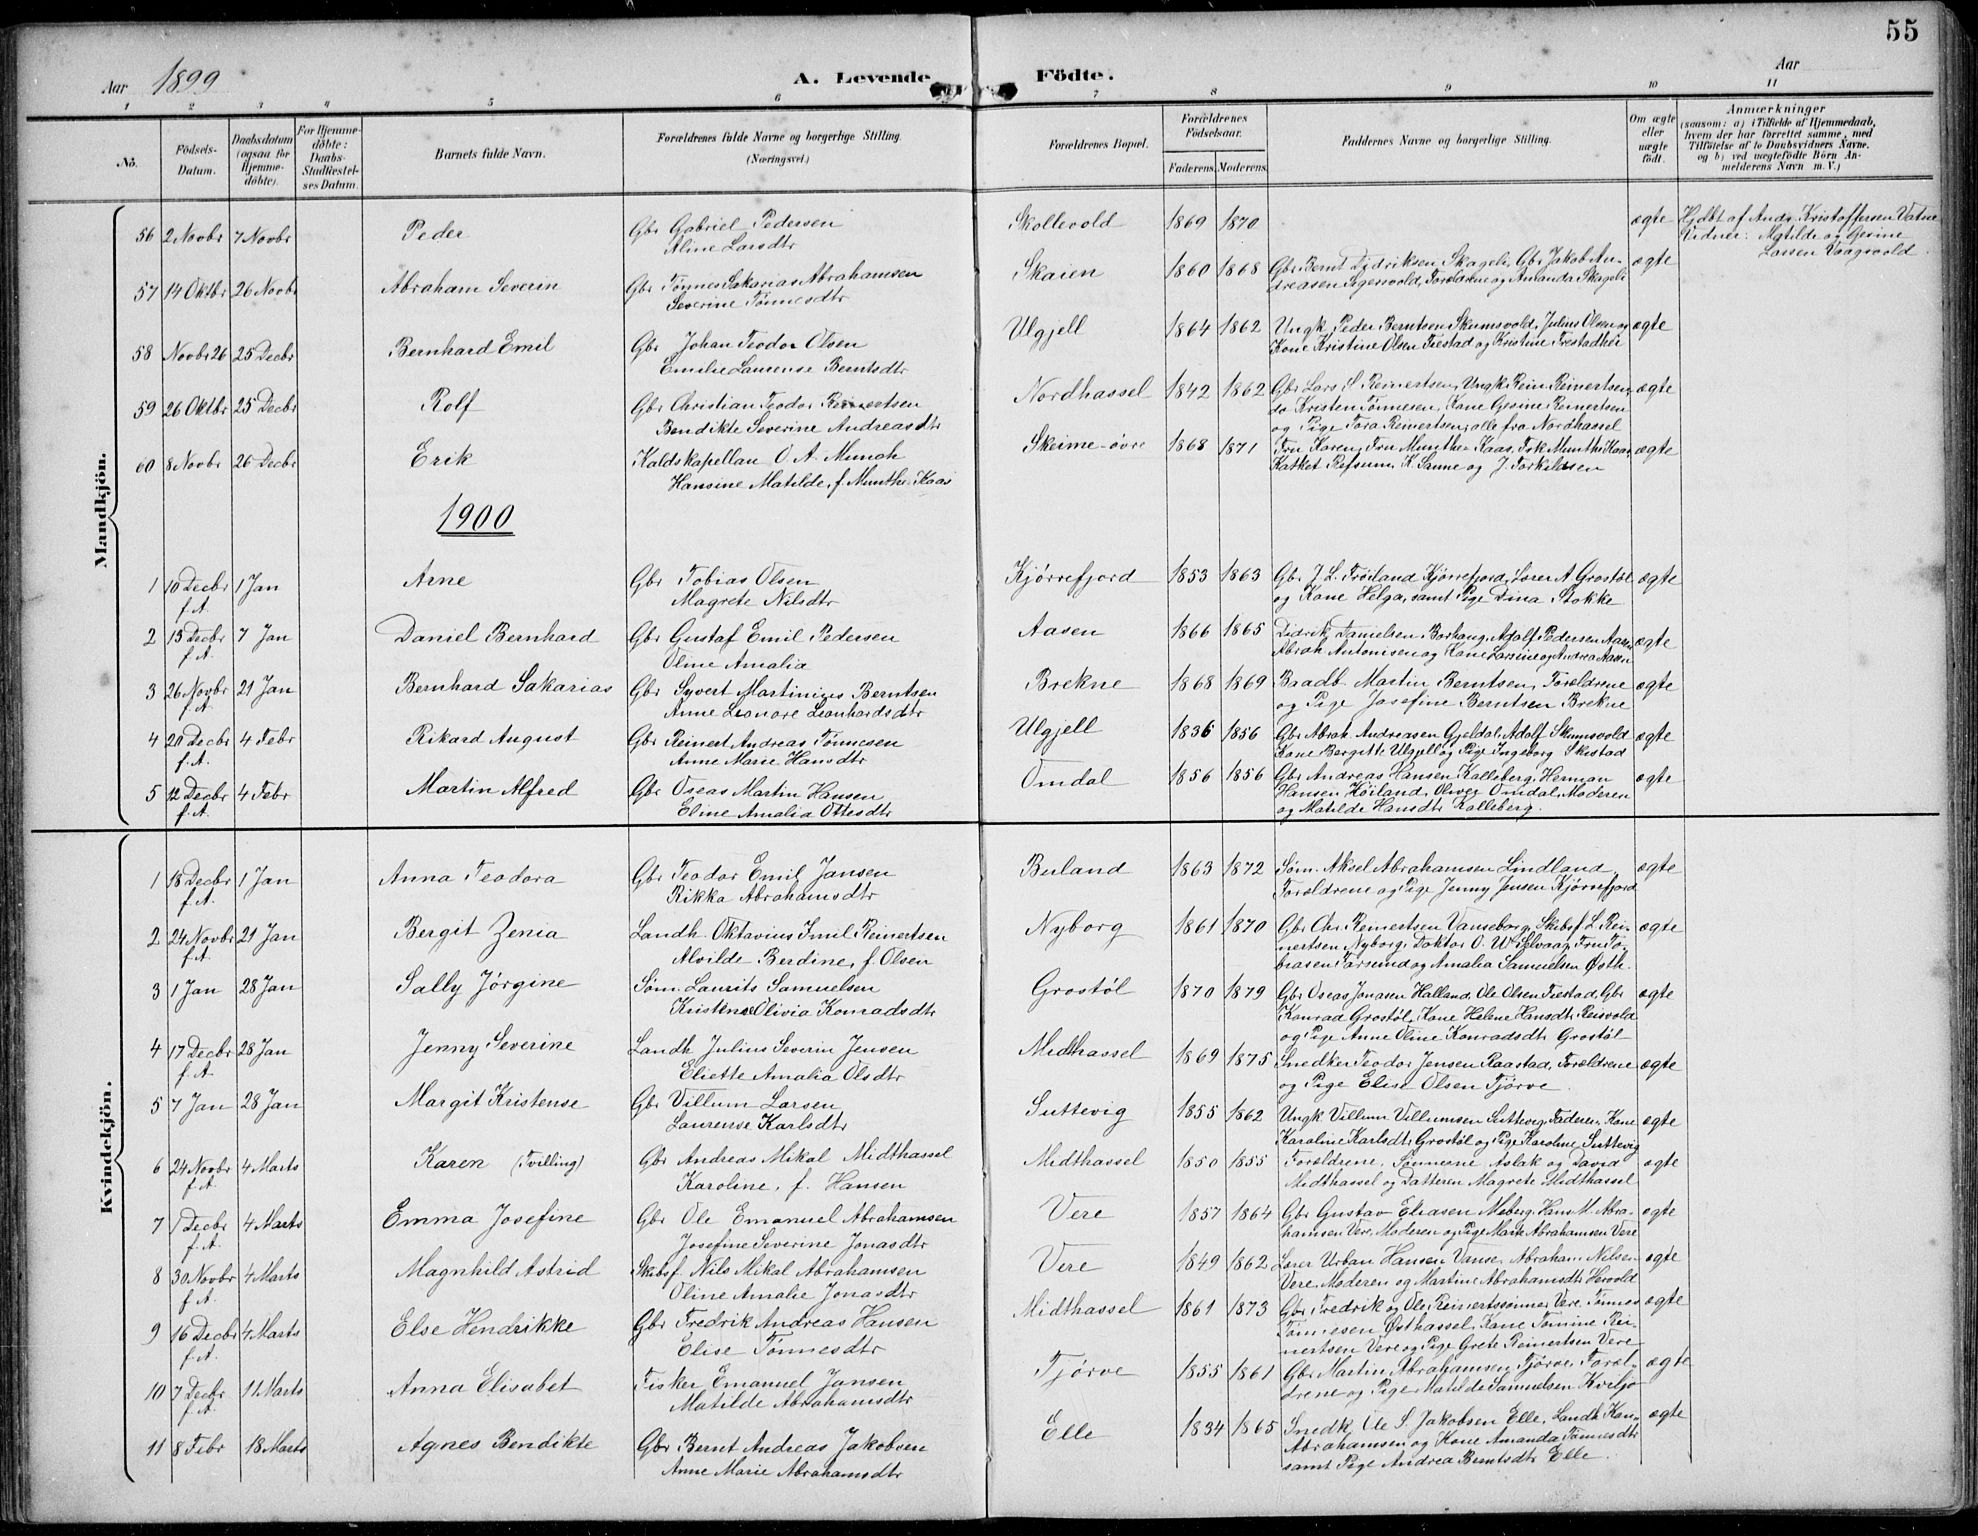 55
Aar 1899
A. Levende Födte.
Aar
1 2 3 4 5 6 7 8 9 10 11
No.
Födsels-Datum.
Daabsdatum (ogsaa for Hjemme-döbte).
For Hjemme-döbte: Daabs-Stadfæstel-ses Datum.
Barnets fulde Navn.
Forældrenes fulde Navne og borgerlige Stilling. (Næringsvei.)
Forældrenes Bopæl.
Forældrenes Födselsaar.
Faderens. Moderens.
Faddernes Navne og borgerlige Stilling.
Om ægte eller uægte födt.
Anmærkninger
(saasom: a) i Tilfælde af Hjemmedaab, hvem der har forrettet samme, med Tilföielse af to Daabsvidners Navne. og b) ved uægtefödte Börn An-melderens Navn m. V.)
Mandkjön.
56 2 Novbr 7 Novbr Peder Gbr Gabriel Pedersen Skollevold 1869 1870 ægte Hjdbt af Andr. Kristoffersen Vatne
Aline Larsdtr Vidner: Matilde og Gesine
Larsen Vaagsvold
57 14 Oktbr 26 Novbr Abraham Severin Gbr Tønnes Sakarias Abrahamsen Skaien 1860 1868 Gbr Bernt Didriksen Skageli, Gbr Jakob An-ægte
Severine Tønnesdtr dreasen Sigersvold, Forældrene og Amanda Skageli
58 Novbr 26 25 Decbr Bernhard Emil Gbr Johan Teodor Olsen Ulgjell 1864 1862 Ungk. Peder Berntsen Skumsvold, Julius Olsen og ægte
Emilie Laurense Berntsdtr Kone Kristine Olsen Tiestad og Kristine
59 26 Oktbr 25 Decbr Rolf Gbr Christian Teodor Reinertsen Nordhassel 1842 1862 Gbr Lars S. Reinertsen, Ungk Rein Reinertsen, ægte
Bendikte Severine Andreasdtr do Kristen Tønnesen, Kone Gesine Reinertsen
og Pige Tora Reinertsen, alle fra Nordhassel
60 8 Novbr 26 Decbr Erik Kaldskapellan O A Munch Skeime-øvre 1868 1871 Fru Karen, Fru Munthe-Kaas, Frk Munthe Kaas, ægte
Hansine Matilde, f. Munthe-Kaas Katket Refsum, K. Sanne og J. Torkildsen
1900
1 10 Decbr f. A. 1 Jan Arne Gbr Tobias Olsen Kjørrefjord 1853 1863 Gbr J. L. Trøiland Kjørrefjord, Lærer A Grostøl ægte
Magrete Nilsdtr og Kone Helga, samt Pige Dina Stokke
2 15 Decbr f. A. 7 Jan Daniel Bernhard Gbr Gustaf Emil Pedersen Aasen 1866 1865 Didrik Danielsen Borhaug, Adolf Pedersen Aasen ægte
Oline Amalia Abrah Antonisen og Kone Larsine og Andrea Aasen
3 26 Novbr f. A. 21 Jan Bernhard Sakarias Gbr Syvert Martinius Berntsen Brekne 1868 1869 Baadb. Martin Berntsen, Forældrene ægte
Anne Leonore Leonhardsdtr og Pige Josefine Berntsen Brekne
4 20 Decbr f. A. 4 Febr Rikard August Gbr Reinert Andreas Tønnesen Ulgjell 1836 1856 Gbr Abrah. Andreasen Gjeldal, Adolf Skumsvold ægte
Anne Marie Hansdtr Kone Bergitte Ulgjell og Pige Ingeborg Skeistad
5 12 Decbr f. A. 4 Febr Martin Alfred Gbr Oseas Martin Hansen Omdal 1856 1856 Gbr Andreas Hansen Kalleberg, Herman ægte
Eline Amalia Ottesdtr Hansen Høiland, Oliver Omdal, Moderen
og Matilde Hansdtr Kalleberg.
Kvindekjön.
1 18 Decbr f. A. 1 Jan Anna Teodora Gbr Teodor Emil Jansen Buland 1863 1872 Søm. Aksel Abrahamsen Lindland, ægte
Rikka Abrahamsdtr Forældrene og Pige Jenny Jensen Kjørrefjord
2 24 Novbr f. A. 21 Jan Bergit Zenia Landh. Oktavius Emil Reinertsen Nyborg 1861 1870 Gbr Chr. Reinertsen Vanseborg, Skibsf. L. Rei-ægte
Alvilde Berdine, f. Olsen nertsen Nyborg, Doktor O. W Selvaag, Fru To-
biasen Farsund og Amalia Samuelsen Østh.
3 1 Jan 28 Jan Sally Jørgine Søm. Laurits Samuelsen Grostøl 1870 1879 Gbr Oseas Jonasen Halland, Ole Olsen Tiestad, Gbr ægte
Kristense Olivia Konradsdtr Konrad Grostøl, Kone Helene Hansdtr Reisvold
og Pige Anne Oline Konradsdtr Grostøl
4 17 Decbr f. A. 28 Jan Jenny Severine Landh. Julius Severin Jensen Midthassel 1869 1875 Snedker Teodor Jensen Raastad, Forældrene ægte
Eliette Amalia Olsdtr og Pige Elise Olsen Tjørve.
5 7 Jan 28 Jan Margit Kristense Gbr Villum Larsen Suttevig 1855 1862 Ungk Villum Villumsen Suttevig, Faderen, Kone ægte
Laurense Karlsdtr Karoline Karlsdtr Grostøl og Pige Karoline Suttevig
6 24 Novbr f. A. 4 Marts Karen (Tvilling) Gbr Andreas Mikal Midthassel Midthassel 1850 1855 Forældrene, Sønnerne Aslak og David ægte
Karoline, f. Hansen Midthassel og Datteren Magrete Midthassel
7 1 Decbr f. A. 4 Marts Emma Josefine Gbr Ole Emanuel Abrahamsen Vere 1857 1864 Gbr Gustav Eliasen Meberg, Hans M. Abra- ægte
Josefine Severine Jonasdtr hamsen Vere, Moderen og Pige Marie Abrahamsen Vere
8 30 Novbr f. A. 4 Marts Magnhild Astrid Skibsf. Nils Mikal Abrahamsen Vere 1849 1862 Lærer Urban Hansen Vanse, Abraham Nilsen ægte
Oline Amalie Jonasdtr Vere, Moderen og Martine Abrahamsdtr Hervold
9 16 Decbr f. A. 4 Marts Else Hendrikke Gbr Fredrik Andreas Hansen Midthassel 1861 1873 Gbr Fredrik og Ole Reinertssønner Vere, Tønnes ægte
Elise Tønnesdtr Tønnesen Østhassel, Kone Tomine Rei-
nertsen Vere og Pige Grete Reinertsen Vere
10 7 Decbr f. A. 11 Marts Anna Elisabet Fisker Emanuel Jansen Tjørve 1855 1861 Gbr Martin Abrahamsen Tjørve, Foræl- ægte
Matilde Abrahamsdtr drene og Pige Matilde Samuelsen Kviljo
11 8 Febr 18 Marts Agnes Bendikte Gbr Bernt Andreas Jakobsen Elle 1834 1865 Snedk. Ole S. Jakobsen Elle, Landh. Han- ægte
Anne Marie Abrahamsdtr Abrahamsen og Kone Amanda Tønnesdtr
samt Pige Andrea Berntsdtr Elle.